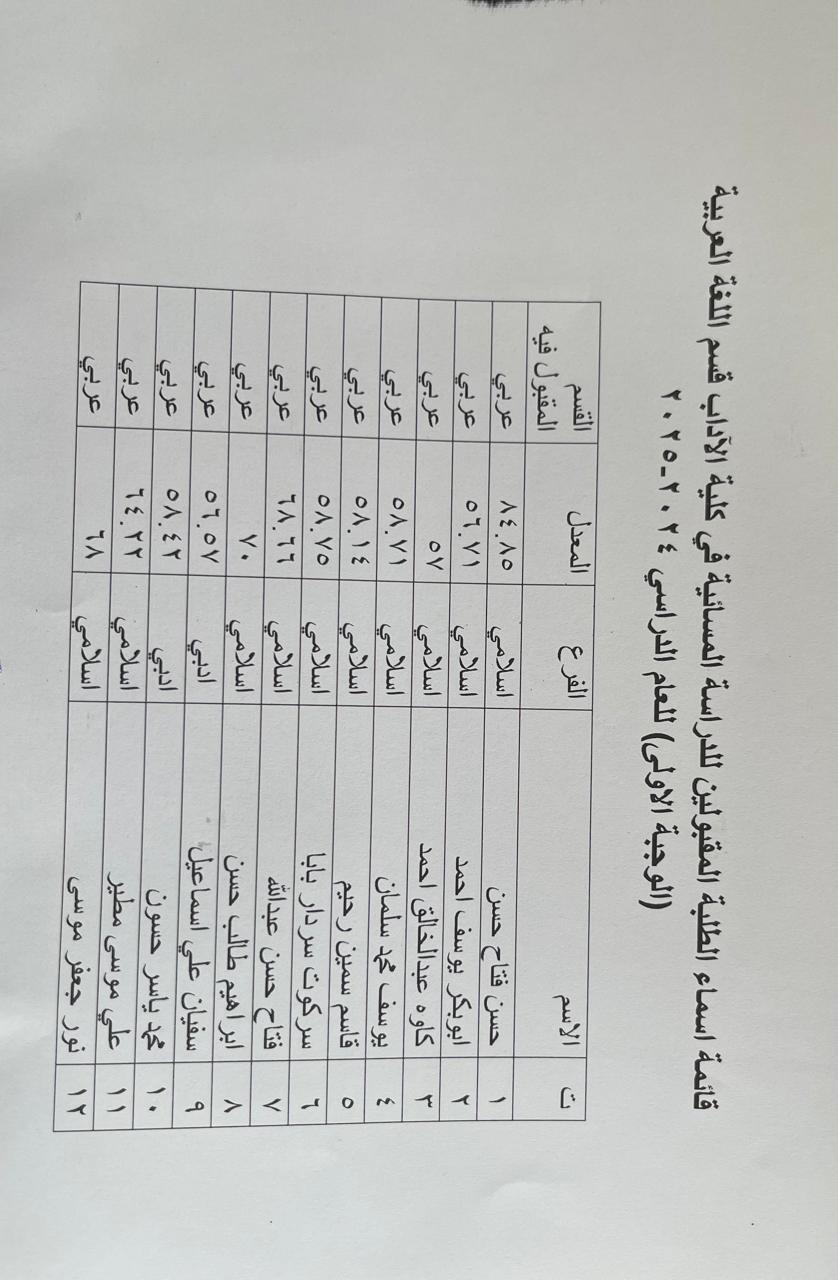 قائمة اسماء الطلبة المقبولين للدراسة المسائية في كلية الآداب قسم اللغة العربية
(الوجبة الاولى) للعام الدراسي ٢٠٢٤-٢٠٢٥
ت الاسم الفرع المعدل القسم المقبول فيه
١ حسن فتاح حسن اسلامي ٨٤.٨٥ عربي
٢ ابوبكر يوسف احمد اسلامي ٥٦.٧١ عربي
٣ كاوه عبدالخالق احمد اسلامي ٥٧ عربي
٤ يوسف محمد سلمان اسلامي ٥٨.٧١ عربي
٥ قاسم سمين رحيم اسلامي ٥٨.١٤ عربي
٦ سركوت سردار بابا اسلامي ٥٨.٧٥ عربي
٧ فتاح حسن عبدالله اسلامي ٦٨.٦٦ عربي
٨ ابراهيم طالب حسن اسلامي ٧٠ عربي
٩ سفيان علي اسماعيل ادبي ٥٦.٥٧ عربي
١٠ محمد ياسر حسون ادبي ٥٨.٤٢ عربي
١١ علي موسى مطير اسلامي ٦٤.٢٢ عربي
١٢ نور جعفر موسى اسلامي ٦٨ عربي